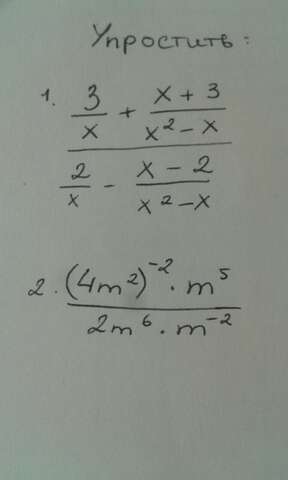 Упростить:
1. \frac{\frac{3}{x} + \frac{x + 3}{x² - x}}{\frac{2}{x} - \frac{x - 2}{x² - x}}
2. \frac{(4m²)⁻² · m⁵}{2m⁶ · m⁻²}